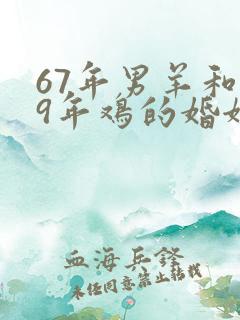 67年男羊和
9年鸡的婚姻
血海兵锋
未经同意禁止转载